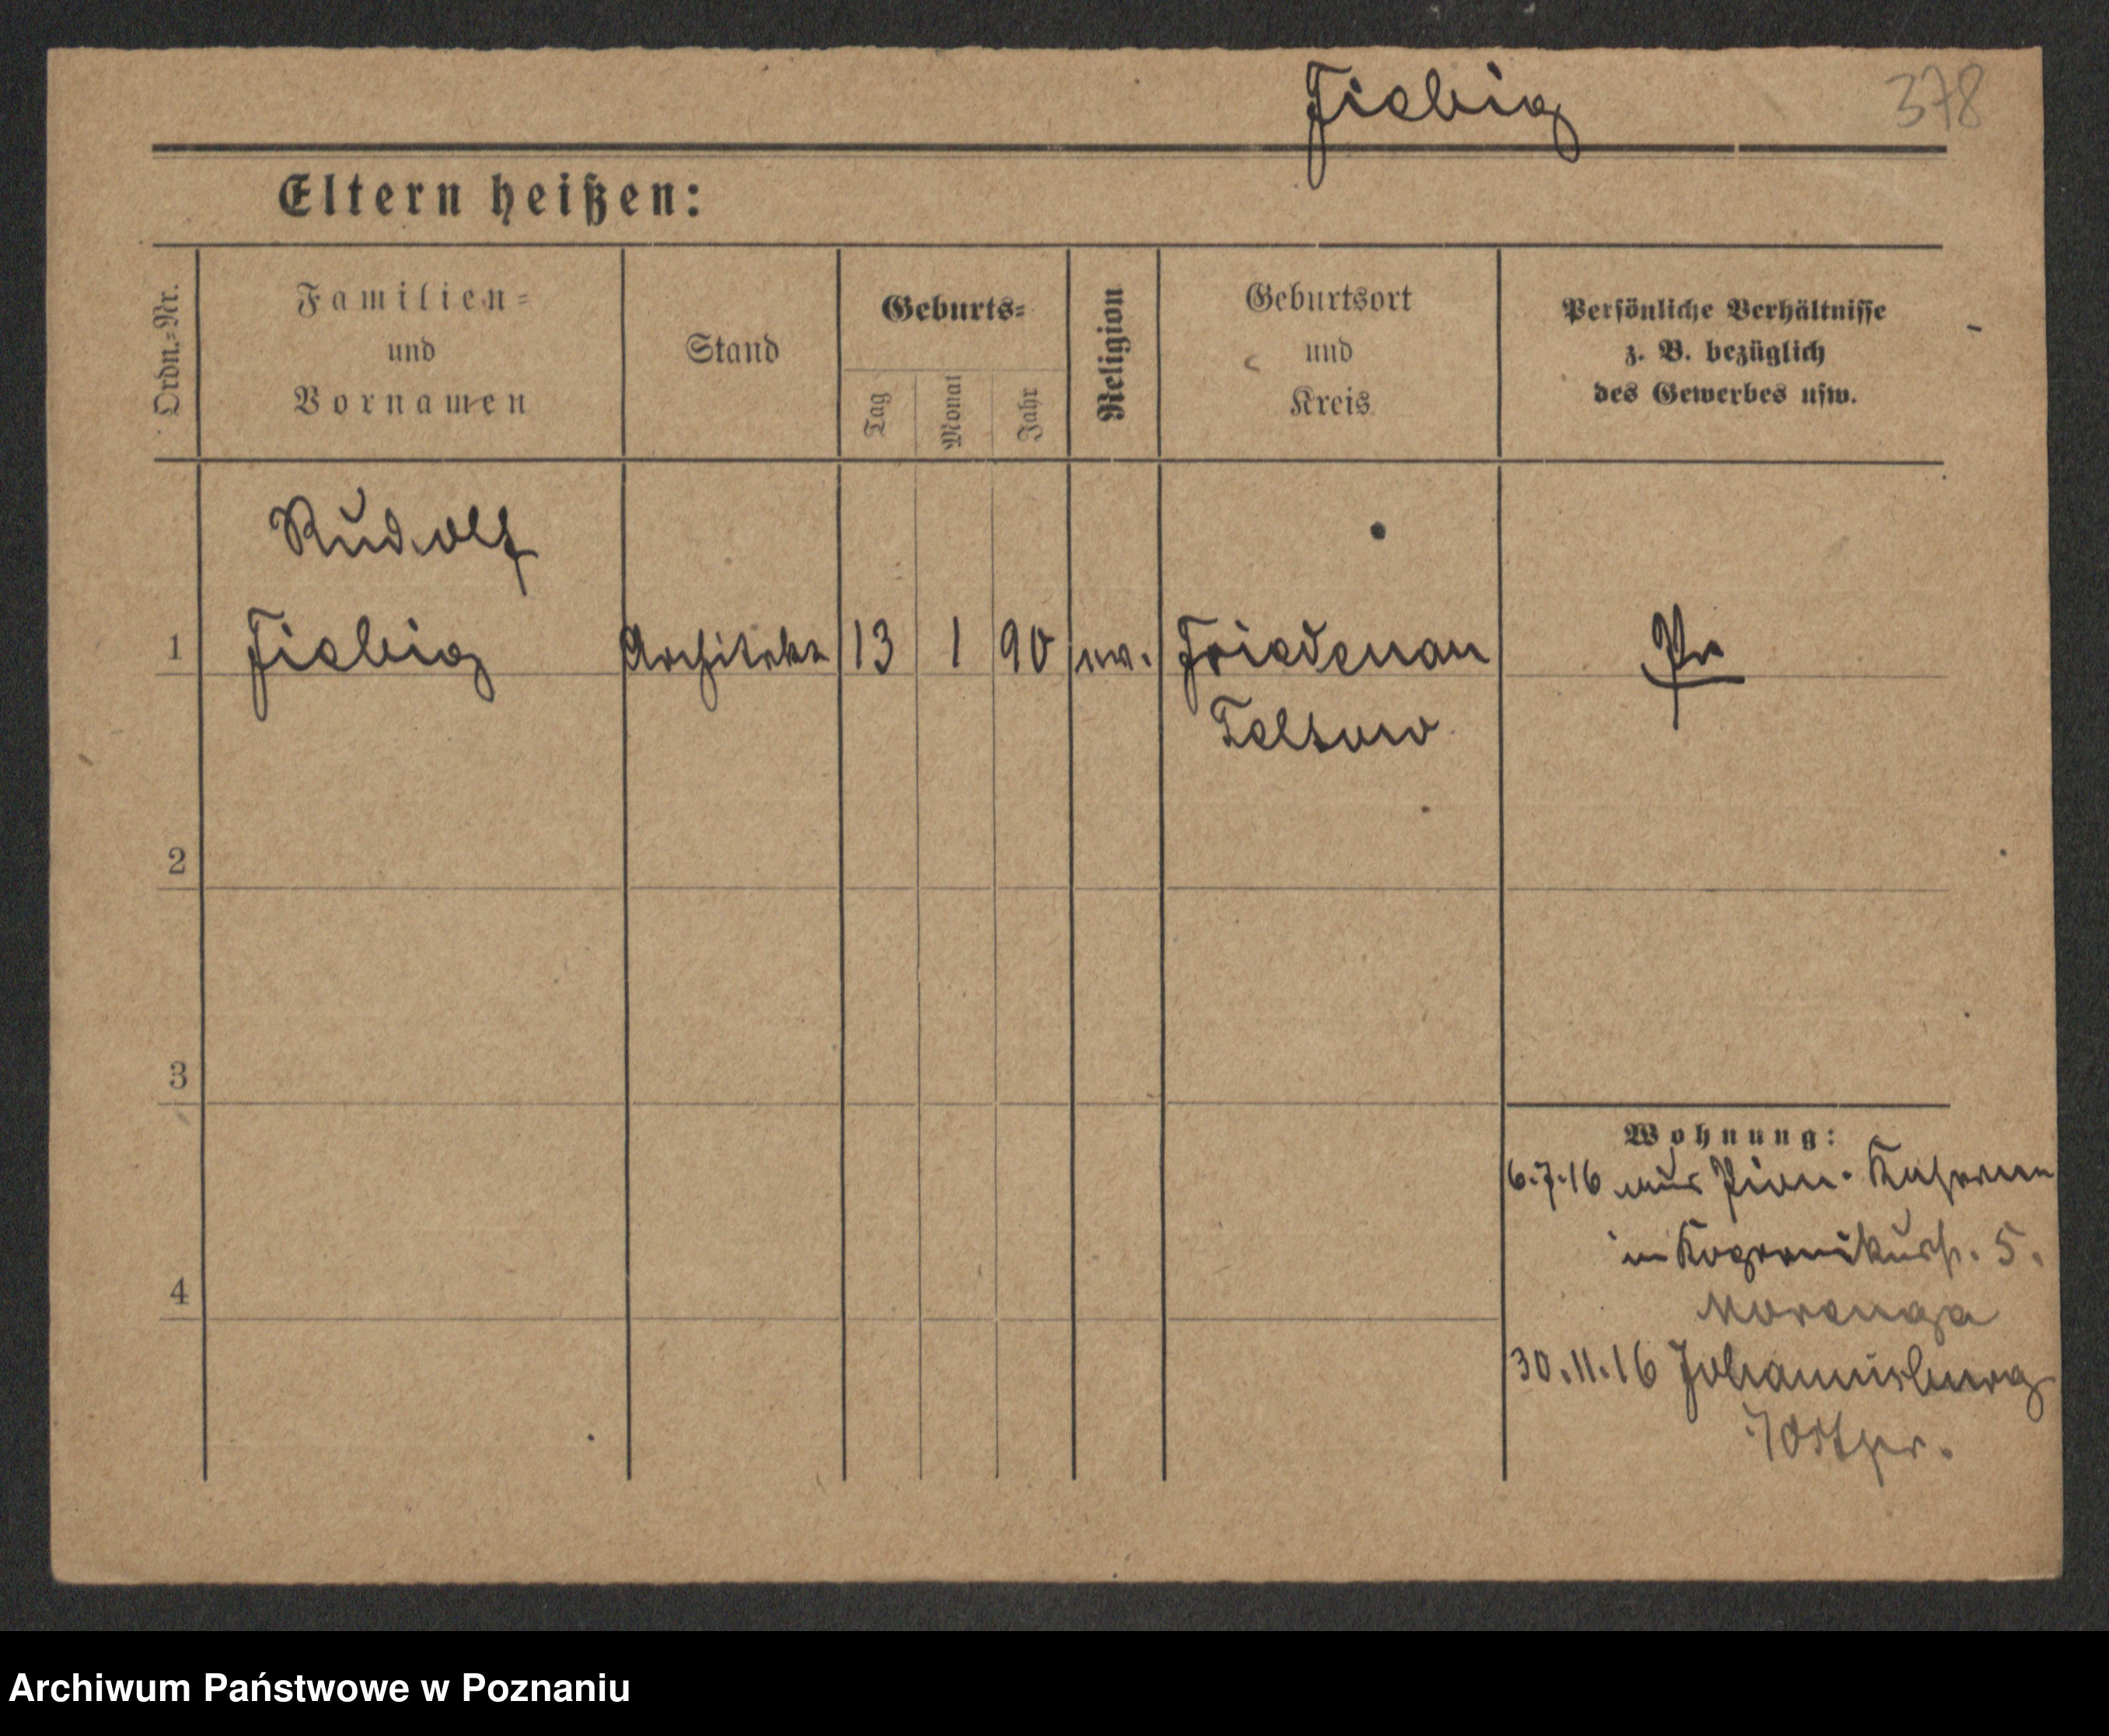 Fiebig
378
Eltern heißen:
Ordn.=Nr.
Familien=
und
Vornamen
Stand
Geburts=
Tag
Monat
Jahr
Religion
Geburtsort
und
Kreis
Persönliche Verhältnisse
z. B. bezüglich
des Gewerbes usw.
Rudolf
1 Fiebig Architekt 13 1 90 ev. Friedenau Pr
Teltow
2
3
Wohnung:
6.7.16 aus Pion. Kaserne
in Kopernikusstr. 5.
4
Morenga
30.11.16 Johannisburg
/Ostpr.
Archiwum Państwowe w Poznaniu